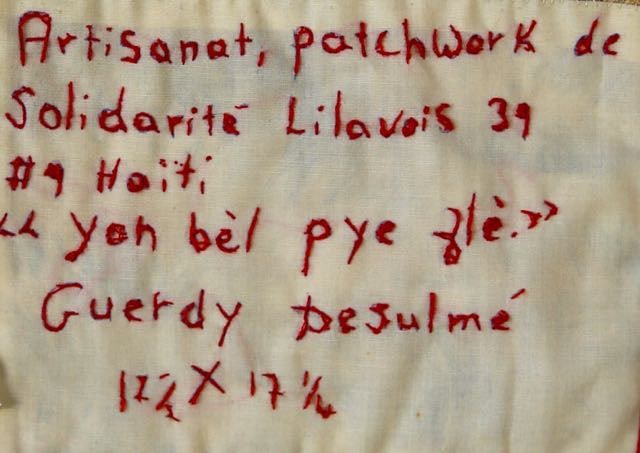 Artisanat, patchwork de
Solidarité Lilavois 39
#9 Haïti
<< yon bèl pye flè.>>
Guerdy Desulmé
17½ X 17 ¼